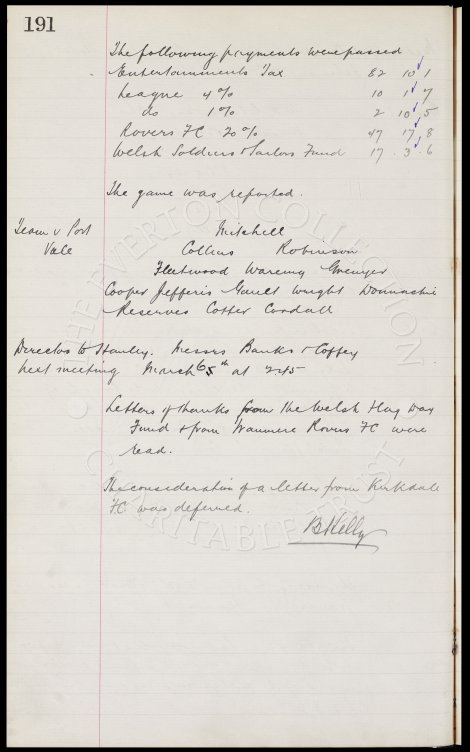 191
The following payments were passed
Entertainments Tax 82 10 1
League 4% 10 1 7
do 1% 2 10 5
Rovers FC 20% 47 17 8
Welsh Soldiers & Sailors Fund 17 . 3 . 6
The game was reported.
Team v Port
Vale
Mitchell
Collins Robinson
Fleetwood Wareing Grenyer
Cooper Jefferis Gault Wright Donnachie
Reserves Cotter Cordall
Directors to Stanley. Messrs Banks & Coffey
next meeting March 5th at 2.45
Letters of thanks from the Welsh Flag Day
Fund & from Tranmere Rovers FC were
read.
The consideration of a letter from Kirkdale
FC was deferred.
B Kelly
THE EVERTON COLLECTION
CHARITABLE TRUST